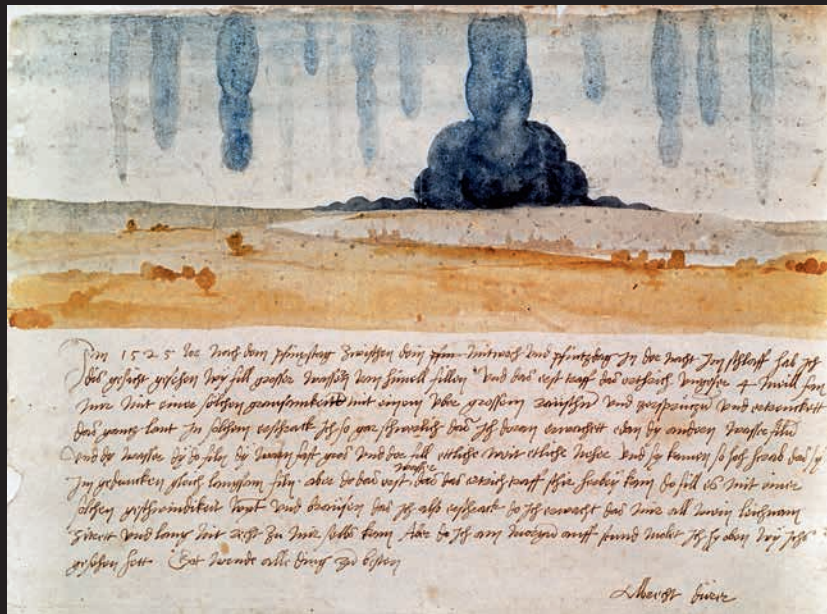 Im 1525 Jor nach dem pfinxstag zwischen dem Mitwoch und pfintzdag in der nacht im schlaff hab ich
dis gesicht gesehen wy fill grosser wassern vom himell fillen Und das erst traff das erthrich ungefer 4 meill fan
mir mit einer solchen grausamkeitt mit einem uber grossem raüschn und zersprützn und ertrenckett
das gantz lant In solchem erschrack ich so gar schwerlich das ich doran erwachett edan dy andern wasser filn
Und dy wasser dy do filn dy warn fast gros und der fill ettliche weit etliche neher und sy kamen so hoch herab das sy
im gedancken gleich langsam filn aber do das erst wasser das das ertrich traff schir herbey kam do fill es mit einer
solchen geschwindikeit wynt und braüsen das ich also erschrack do ich erwacht das mir all mein leichnam
zitrett und lang nit recht zu mir selbs kam Aber do ich am morgn auff stund molet ich hy oben wy ichs
gesehen hett Got wende alle ding zu besten
Albrecht dürer